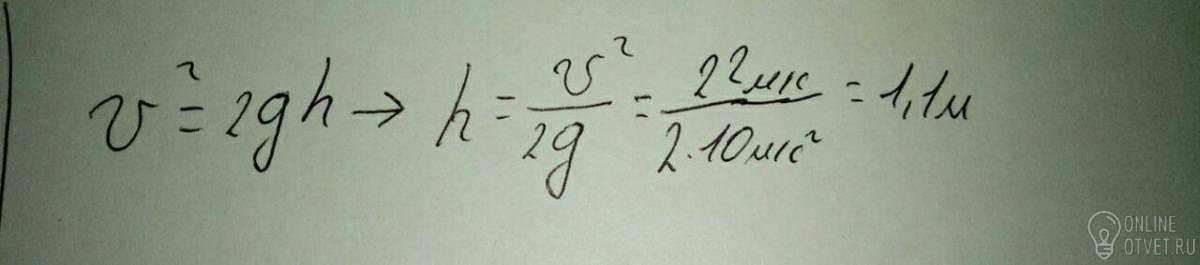 v² = 2gh → h = v²/2g = 2²мк/2·10мк² = 1,1м
ONLINE
OTVET.RU